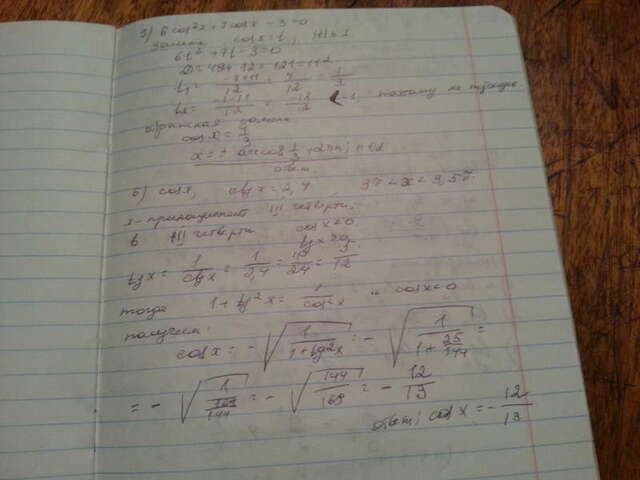 5) 6 cos²x + 7 cos x − 3 = 0
замена cos x = t, |t| ≤ 1
6t² + 7t − 3 = 0
D = 49 + 72 = 121 = 11²
t₁ = (−7+11)/12 = 4/12 = 1/3
t₂ = (−7−11)/12 = −18/12 < −1, поэтому не
обратная замена
cos x = 1/3
x = ± arccos 1/3 + 2πn, n∈Z
ответ
6) cos x, ctg x = 2,4 3π < x < 3,5π
x - принадлежит III четверти.
В III четверти cos x < 0
tg x > 0
tg x = 1/ctg x = 1/2,4 = 10/24 = 5/12
тогда 1 + tg²x = 1/cos²x и cos x < 0
получаем:
cos x = − √(1/(1+tg²x)) = − √(1/(1+25/144)) =
= − √(1/(169/144)) = − √(144/169) = − 12/13
ответ: cos x = − 12/13